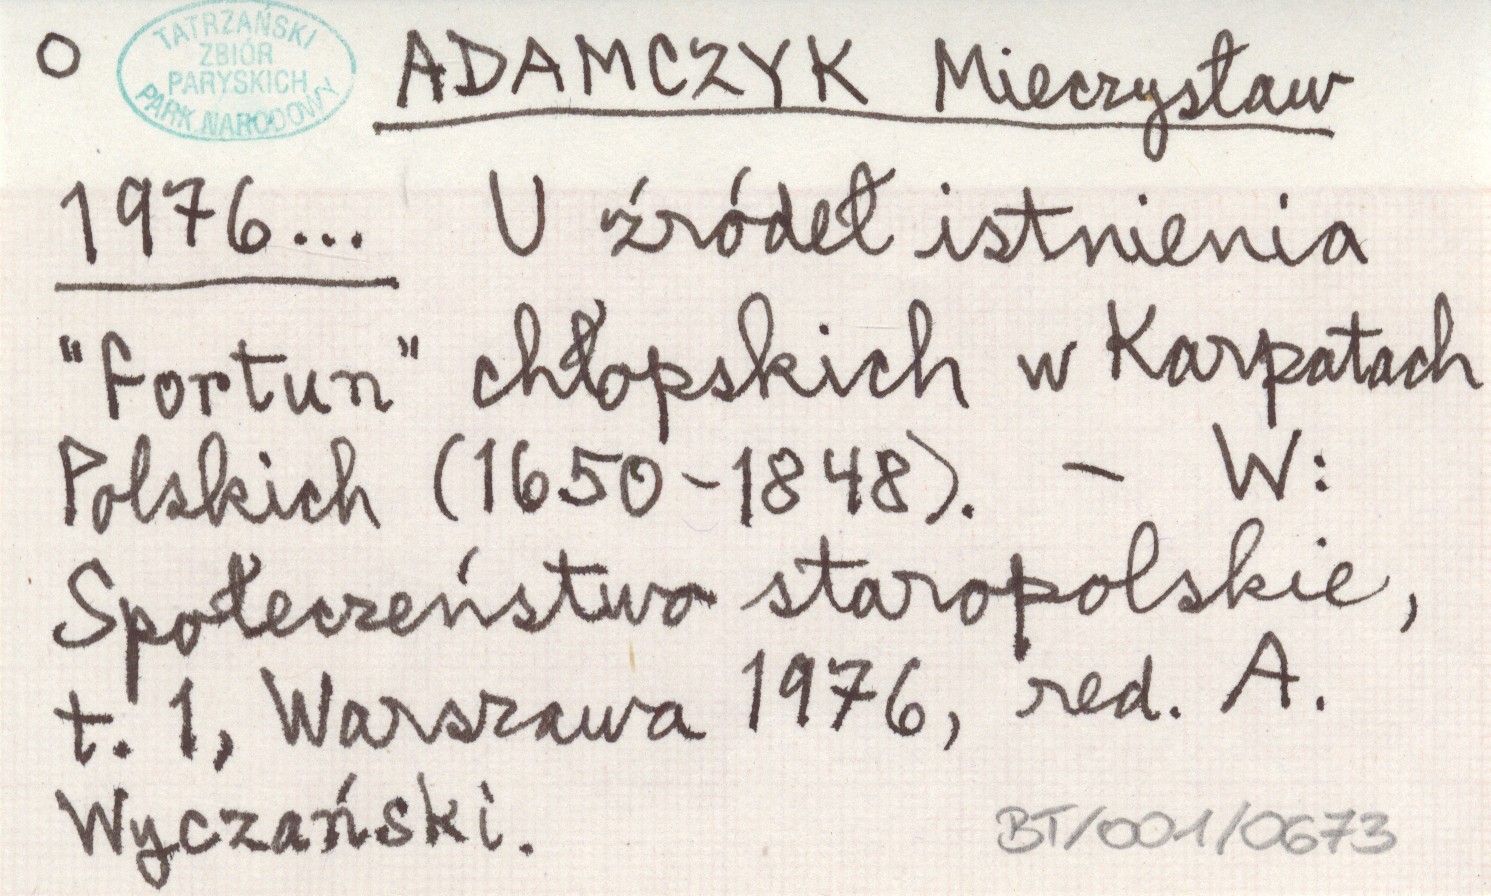 O TATRZAŃSKI ZBIÓR PARYSKICH PARK NARODOWY ADAMCZYK Mieczysław
1976... U źródeł istnienia
"fortun" chłopskich w Karpatach
Polskich (1650-1848). - W:
Społeczeństwo staropolskie,
t. 1, Warszawa 1976, red. A.
Wyczański.
BT/001/0673